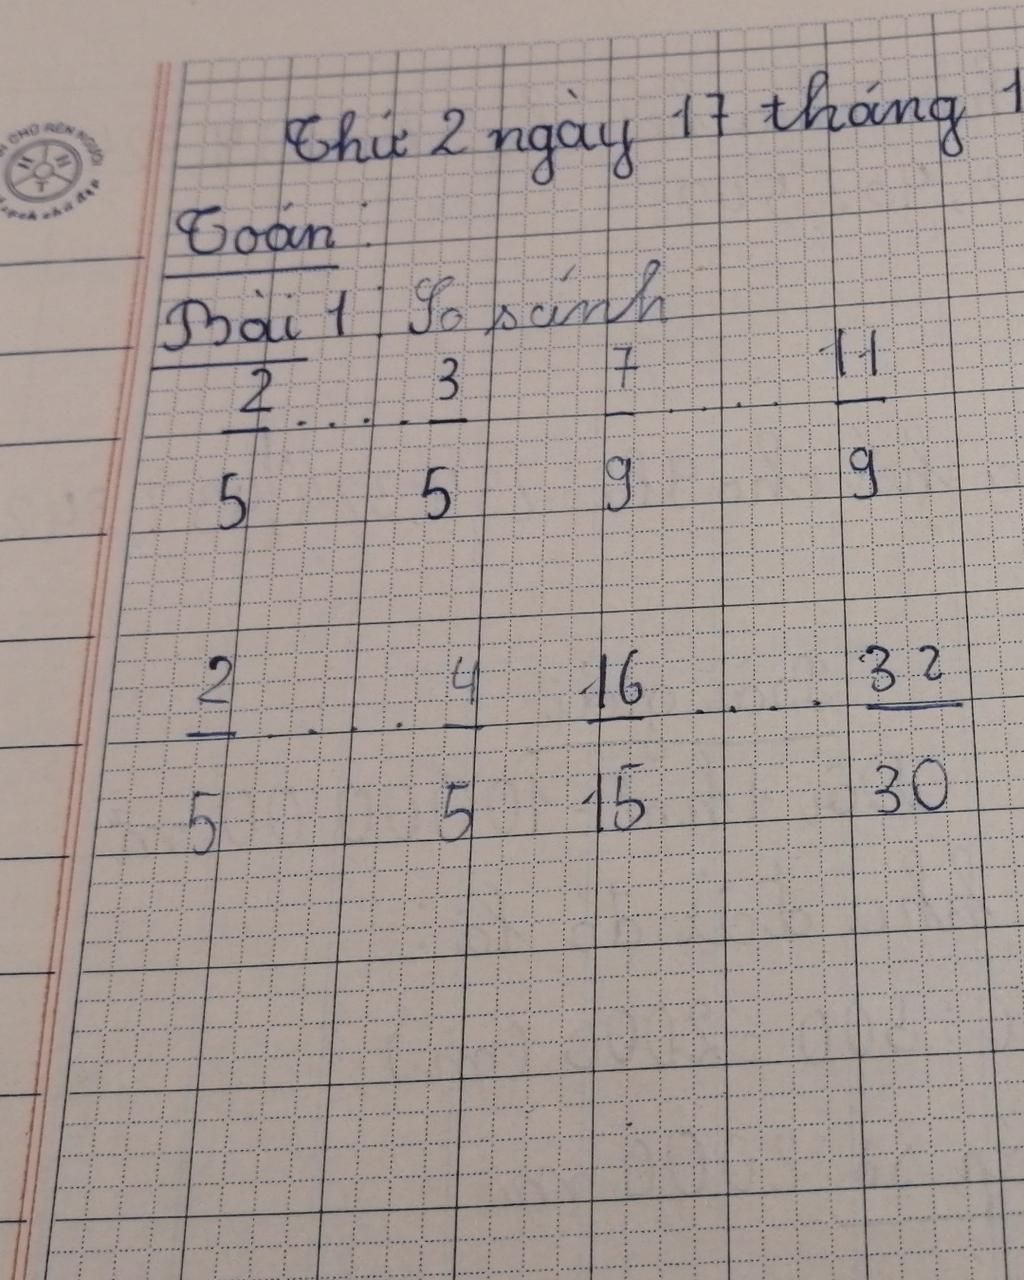 Thứ 2 ngày 17 tháng 1
Toán:
Bài 1: So sánh
2/5 ..... 3/5 7/9 ..... 11/9
2/5 ..... 4/5 16/15 ..... 32/30